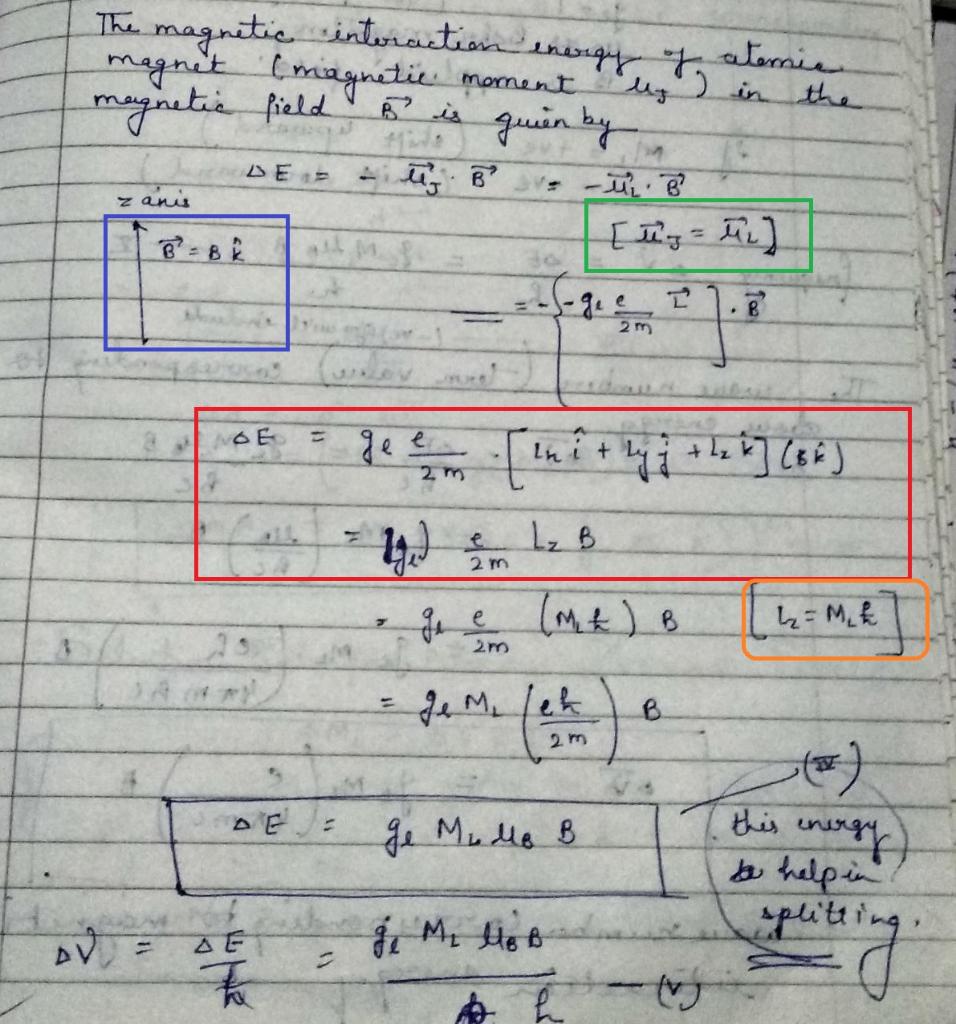 The magnetic interaction energy of atomic
magnet (magnetic moment μ_J) in the
magnetic field B⃗ is given by
ΔE = - μ⃗_J . B⃗ = -μ⃗_L . B⃗
z axis
B⃗ = B k̂
[μ⃗_J = μ⃗_L]
= -[-g_l e/2m L⃗] . B⃗
ΔE = g_l e/2m . [Lx î + Ly ĵ + Lz k̂] (B k̂)
= (g_l) e/2m Lz B
= g_l e/2m (M_L ħ) B [Lz = M_L ħ]
= g_l M_L (eħ/2m) B
(IV)
ΔE = g_l M_L μ_B B
this energy
help in
splitting.
Δν = ΔE/h = g_l M_L μ_B B / h — (V)